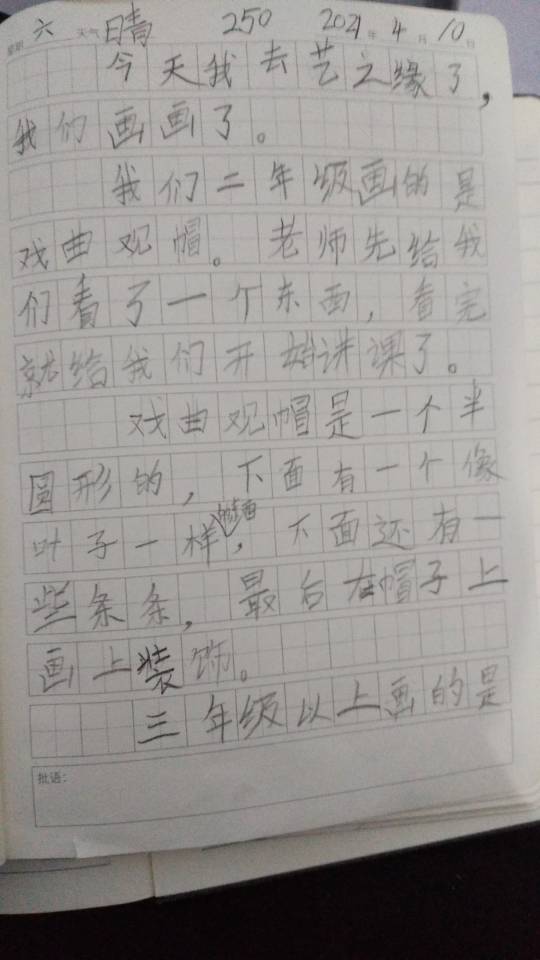 星期 六 天气 晴 250 2021年 4月 10日
今天我去艺之缘了，
我们画画了。
我们二年级画的是
戏曲观帽。老师先给我
们看了一个东西，看完
就给我们开始讲课了。
戏曲观帽是一个半
圆形的，下面有一个像
叶子一样，下面还有一
些条条，最后在帽子上
画上装饰。
三年级以上画的是
批语：